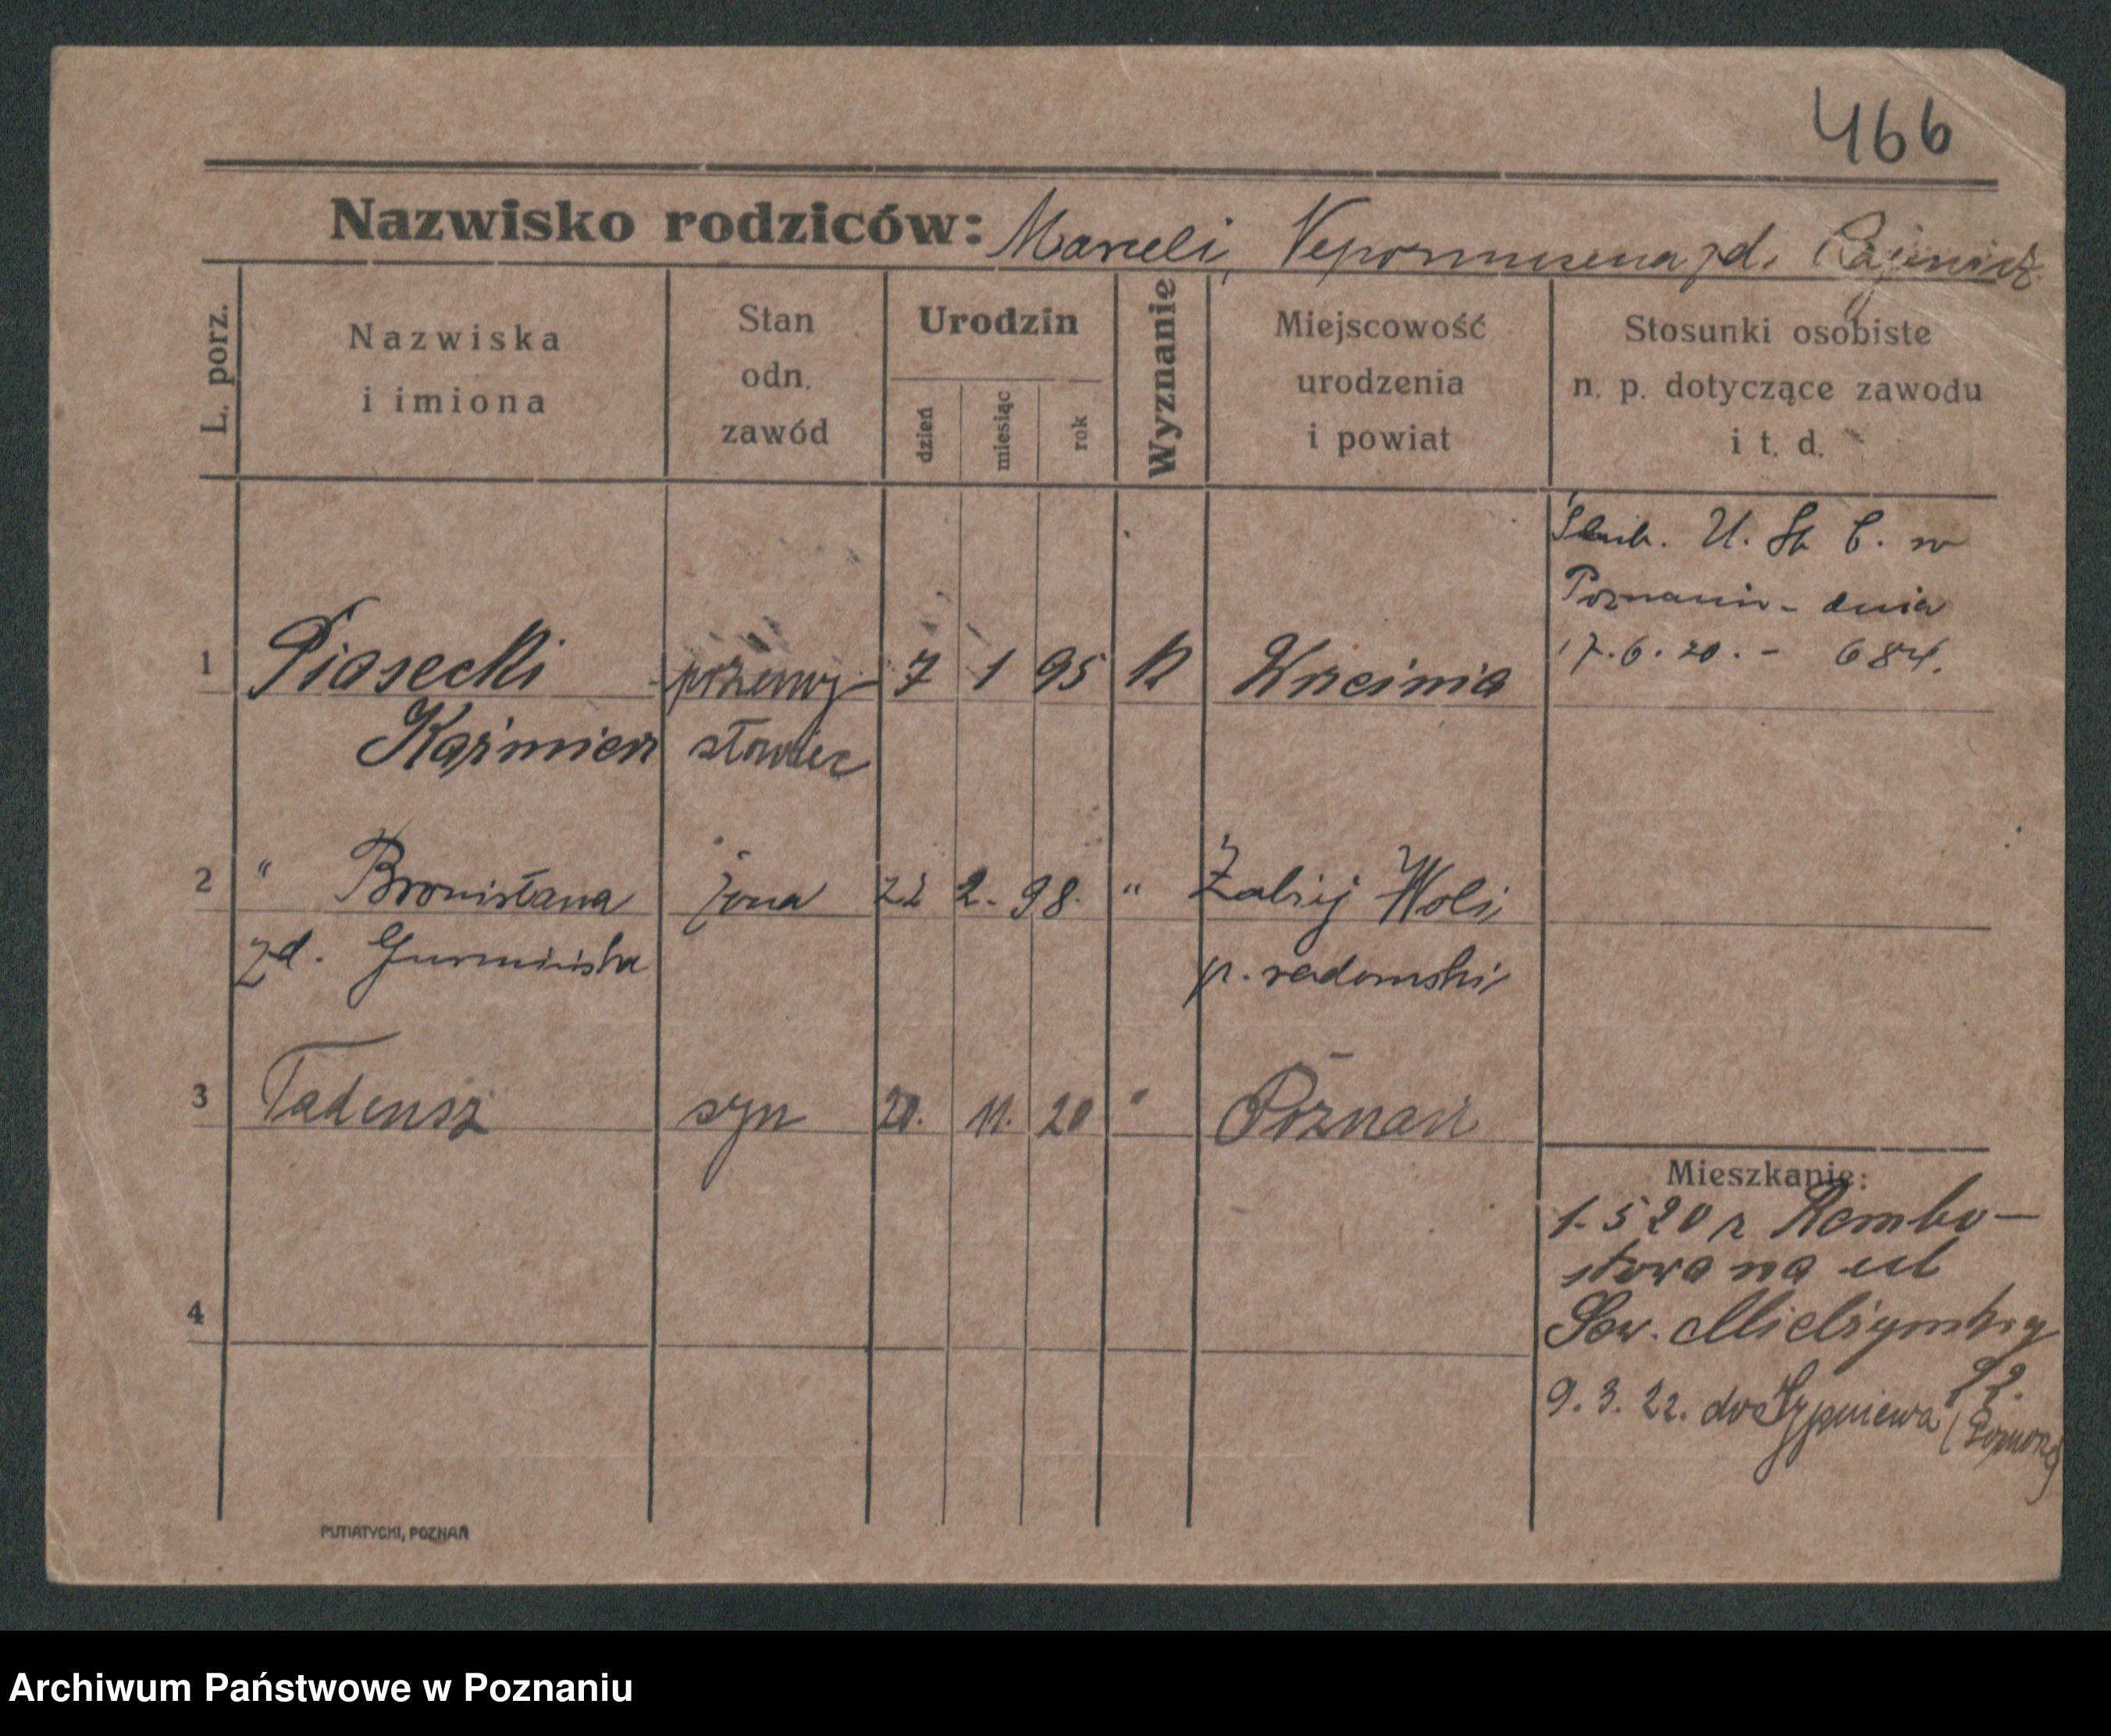 466
Nazwisko rodziców: Marceli, Nepomucena zd.
L. porz.
Nazwiska
i imiona
Stan
odn.
zawód
Urodzin
dzień
miesiąc
rok
Wyznanie
Miejscowość
urodzenia
i powiat
Stosunki osobiste
n. p. dotyczące zawodu
i t. d.
Ślub. U. St. C. w
Poznaniu - dnia
17.6.20. - 684.
1 Piasecki przemy- 7 1 95 K Wrcimia
Kaźmierz słowiec
2 " Bronisława żona 22 2. 98. " Żabiej Woli
zd. p. radomski
3 Tadeusz syn 20. 11. 20 " Poznań
Mieszkanie:
1.5 20 z Rembo-
stowa na ul
Sew. Mielżyńskiego
22.
9.3.22. do Sypniewa (Pomorze)
4
PUTIATYCKI, POZNAŃ
Archiwum Państwowe w Poznaniu